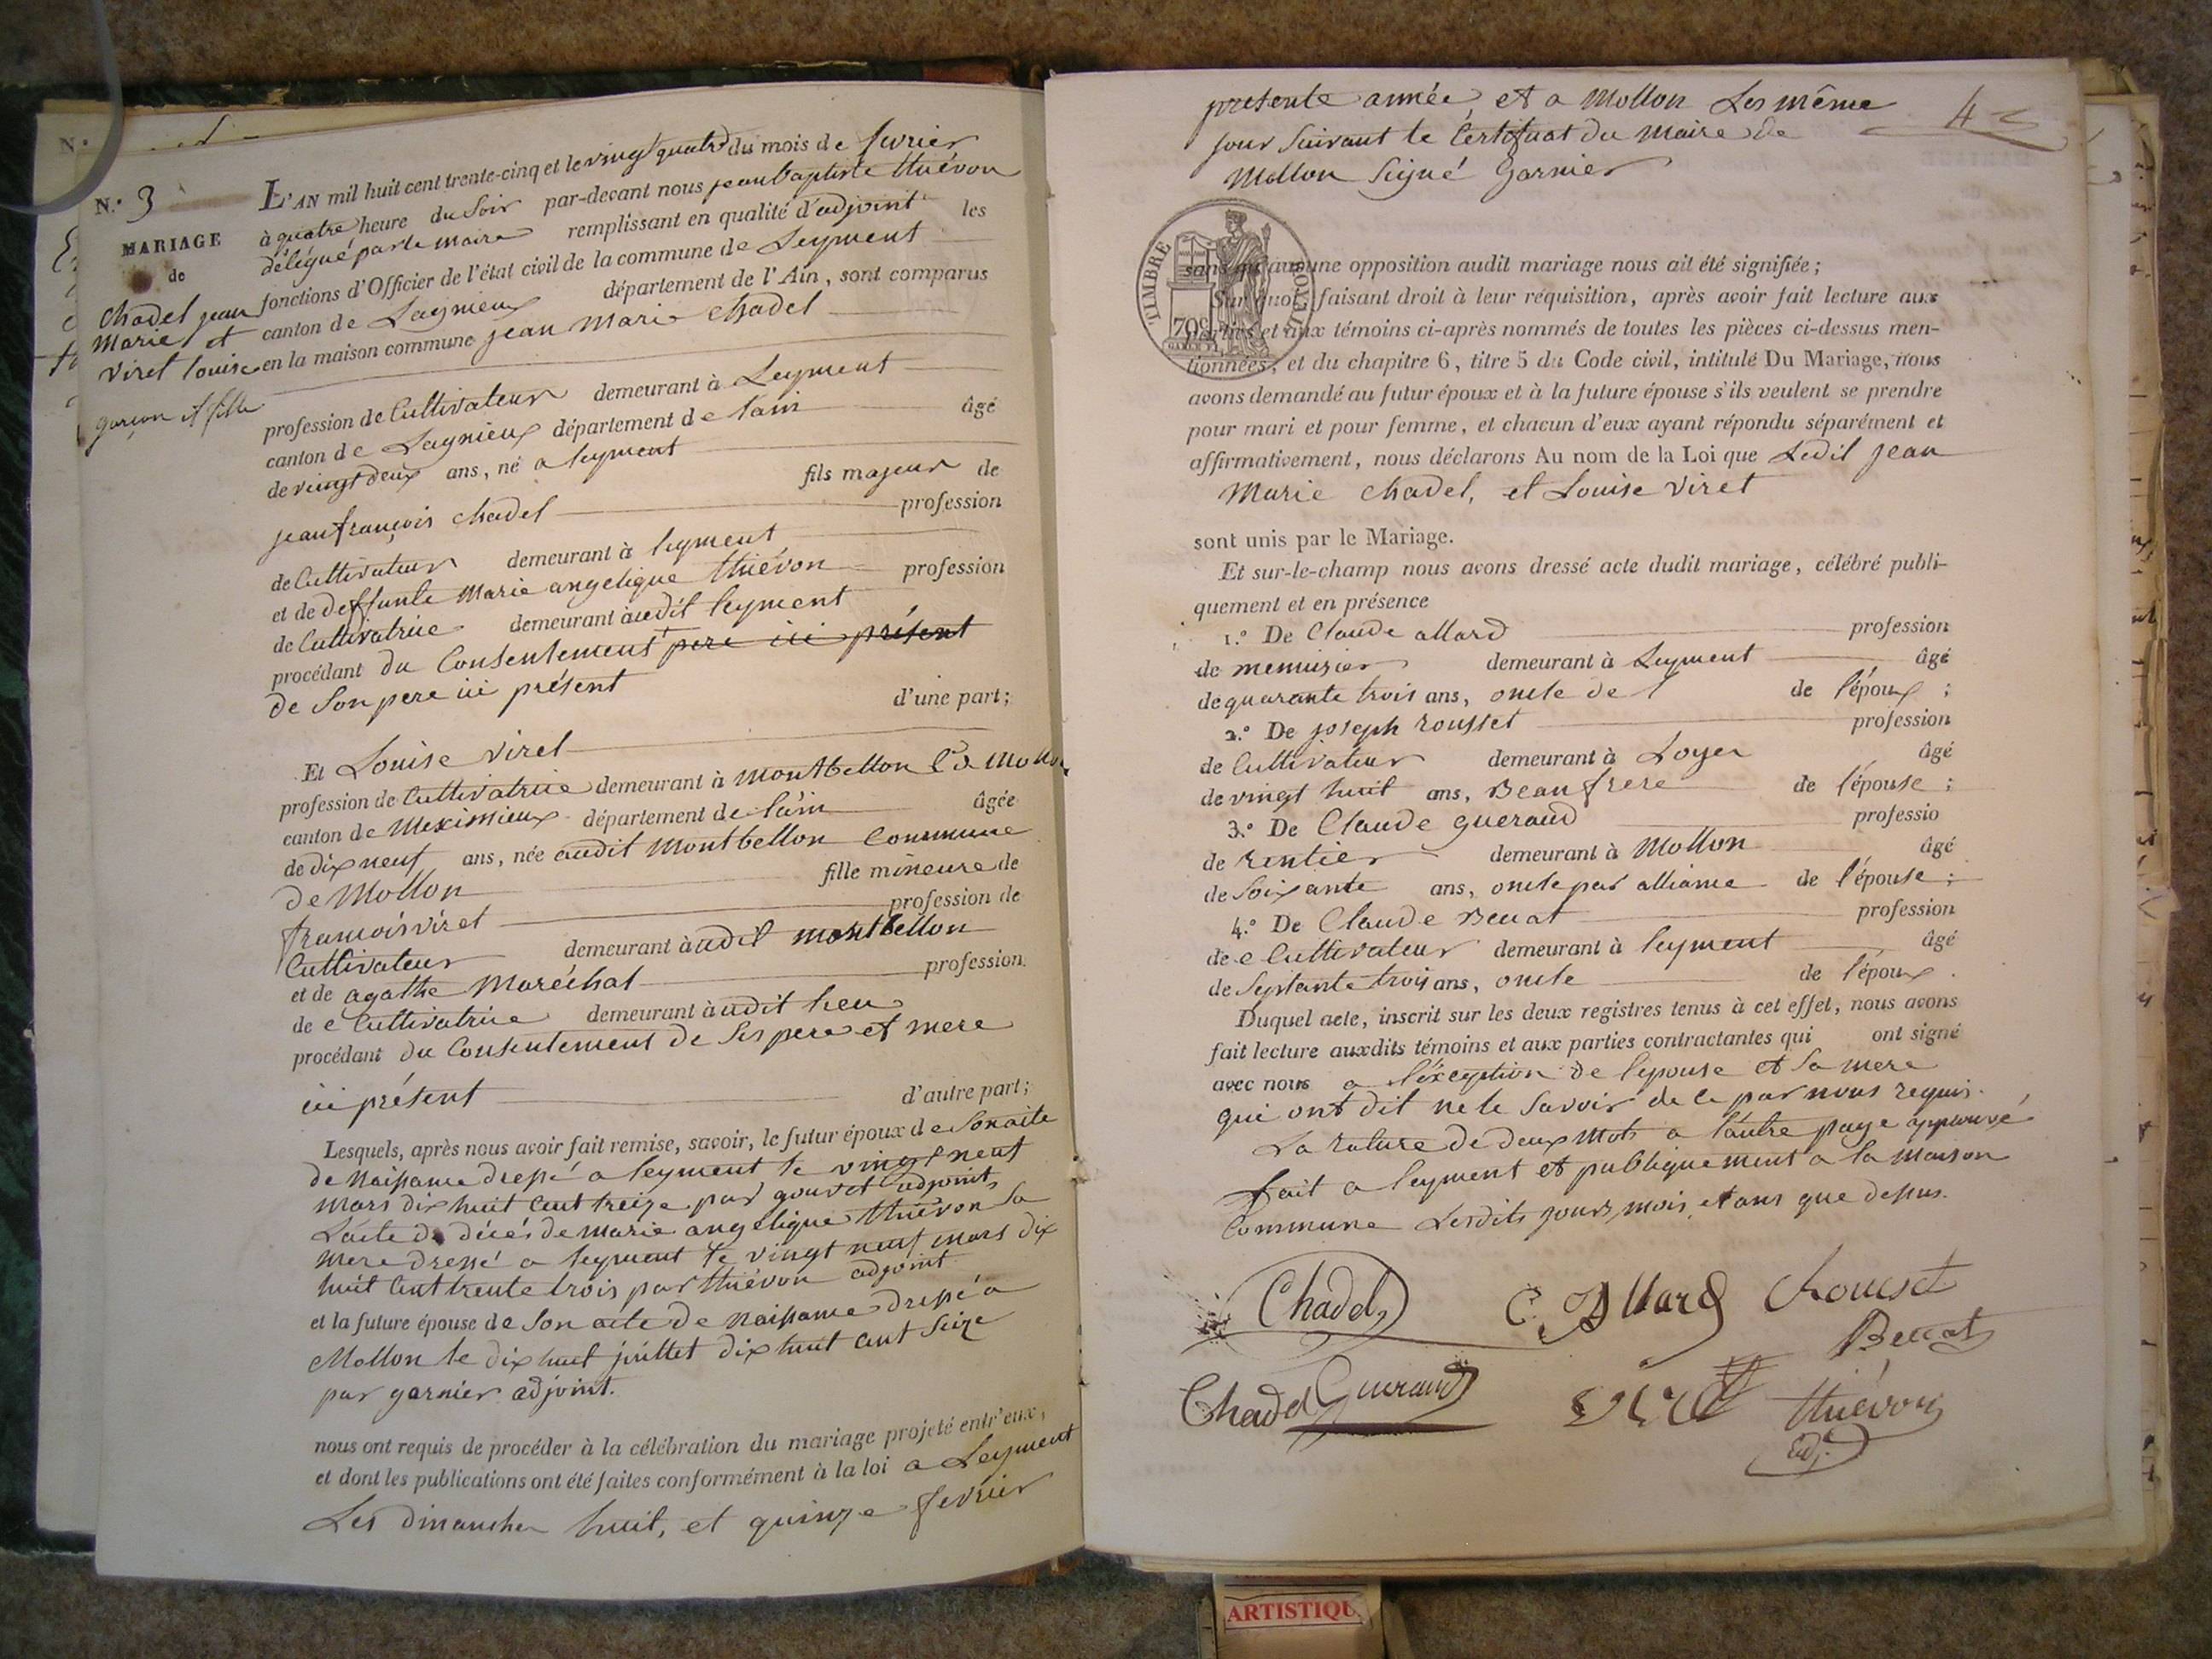 N.º 3
MARIAGE
de
Chadel jean
Marie et
Viret louise
garçon et fille
L'AN mil huit cent trente-cinq et le vingt quatre du mois de fevrier
à quatre heure du Soir par-devant nous jean baptiste thiévon
délégué par le maire remplissant en qualité d'adjoint les
fonctions d'Officier de l'état civil de la commune de Leyment
canton de Lagnieux département de l'Ain, sont comparus
en la maison commune jean Marie Chadel
profession de Cultivateur demeurant à Leyment
canton de Lagnieux département de lain âgé
de vingt deux ans, né a leyment
fils majeur de
jean françois Chadel profession
de Cultivateur demeurant à leyment
et de deffunte Marie angelique thiévon profession
de Cultivatrice demeurant àudit leyment
procédant du Consentement pere ici présent
de Son pere ici présent d'une part;
Et Louise Viret
profession de Cultivatrice demeurant à Montbellon Cne Mollon
canton de Meximieux département de l'ain âgée
de dix neuf ans, née audit Montbellon Commune
de Mollon fille mineure de
francois viret profession de
Cultivateur demeurant àudit montbellon
et de agathe Maréchal profession
de e Cultivatrice demeurant àudit lieu
procédant du Consentement de Ses pere et mere
ici présent d'autre part;
Lesquels, après nous avoir fait remise, savoir, le futur époux de Son acte
de Naissance dressé a leyment le vingt neuf
Mars dix huit Cent treize par gouvet adjoint,
L'acte de décés de Marie angélique thiévon Sa
Mere dressé a leyment le vingt neuf mars dix
huit Cent trente trois par thiévon adjoint
et la future épouse de Son acte de Naissance dressé a
Mollon le dix huit juillet dix huit cent Seize
par garnier adjoint.
nous ont requis de procéder à la célébration du mariage projeté entr'eux,
et dont les publications ont été faites conformément à la loi a Leyment
Les dimanches huit, et quinze fevrier
4
presente année, et a Mollon Les même
jour Suivant le Certificat du Maire de
Mollon Signé Garnier
TIMBRE ROYAL
70c
sans qu'aucune opposition audit mariage nous ait été signifiée;
Sur quoi, faisant droit à leur réquisition, après avoir fait lecture aux
parties et aux témoins ci-après nommés de toutes les pièces ci-dessus men-
tionnées, et du chapitre 6, titre 5 du Code civil, intitulé Du Mariage, nous
avons demandé au futur époux et à la future épouse s'ils veulent se prendre
pour mari et pour femme, et chacun d'eux ayant répondu séparément et
affirmativement, nous déclarons Au nom de la Loi que Ledit Jean
Marie Chadel, et Louise Viret
sont unis par le Mariage.
Et sur-le-champ nous avons dressé acte dudit mariage, célébré publi-
quement et en présence
1.º De Claude allard profession
de menuisier demeurant à Leyment âgé
de quarante trois ans, oncle de l de l'époux;
2.º De joseph rousset profession
de Cultivateur demeurant à Loyer âgé
de vingt huit ans, Beau frere de l'épouse;
3.º De Claude gueraud professio
de rentier demeurant à Mollon âgé
de Soixante ans, oncle par alliance de l'épouse;
4.º De Claude Beuat profession
de e Cultivateur demeurant à leyment âgé
de Septante trois ans, oncle de l'époux.
Duquel acte, inscrit sur les deux registres tenus à cet effet, nous avons
fait lecture auxdits témoins et aux parties contractantes qui ont signé
avec nous a l'éxception de l'epouse et Sa mere
qui ont dit ne le Savoir de ce par nous requis.
La rature de deux Mots a l'autre page approuvé
fait a leyment et publiquement a la maison
Commune Lesdits jours, mois, et ans que dessus.
Chadel C. Allard Rousset
Beuat
Chadel Gueraud Viret thiévon
adj.
ARTISTIQU